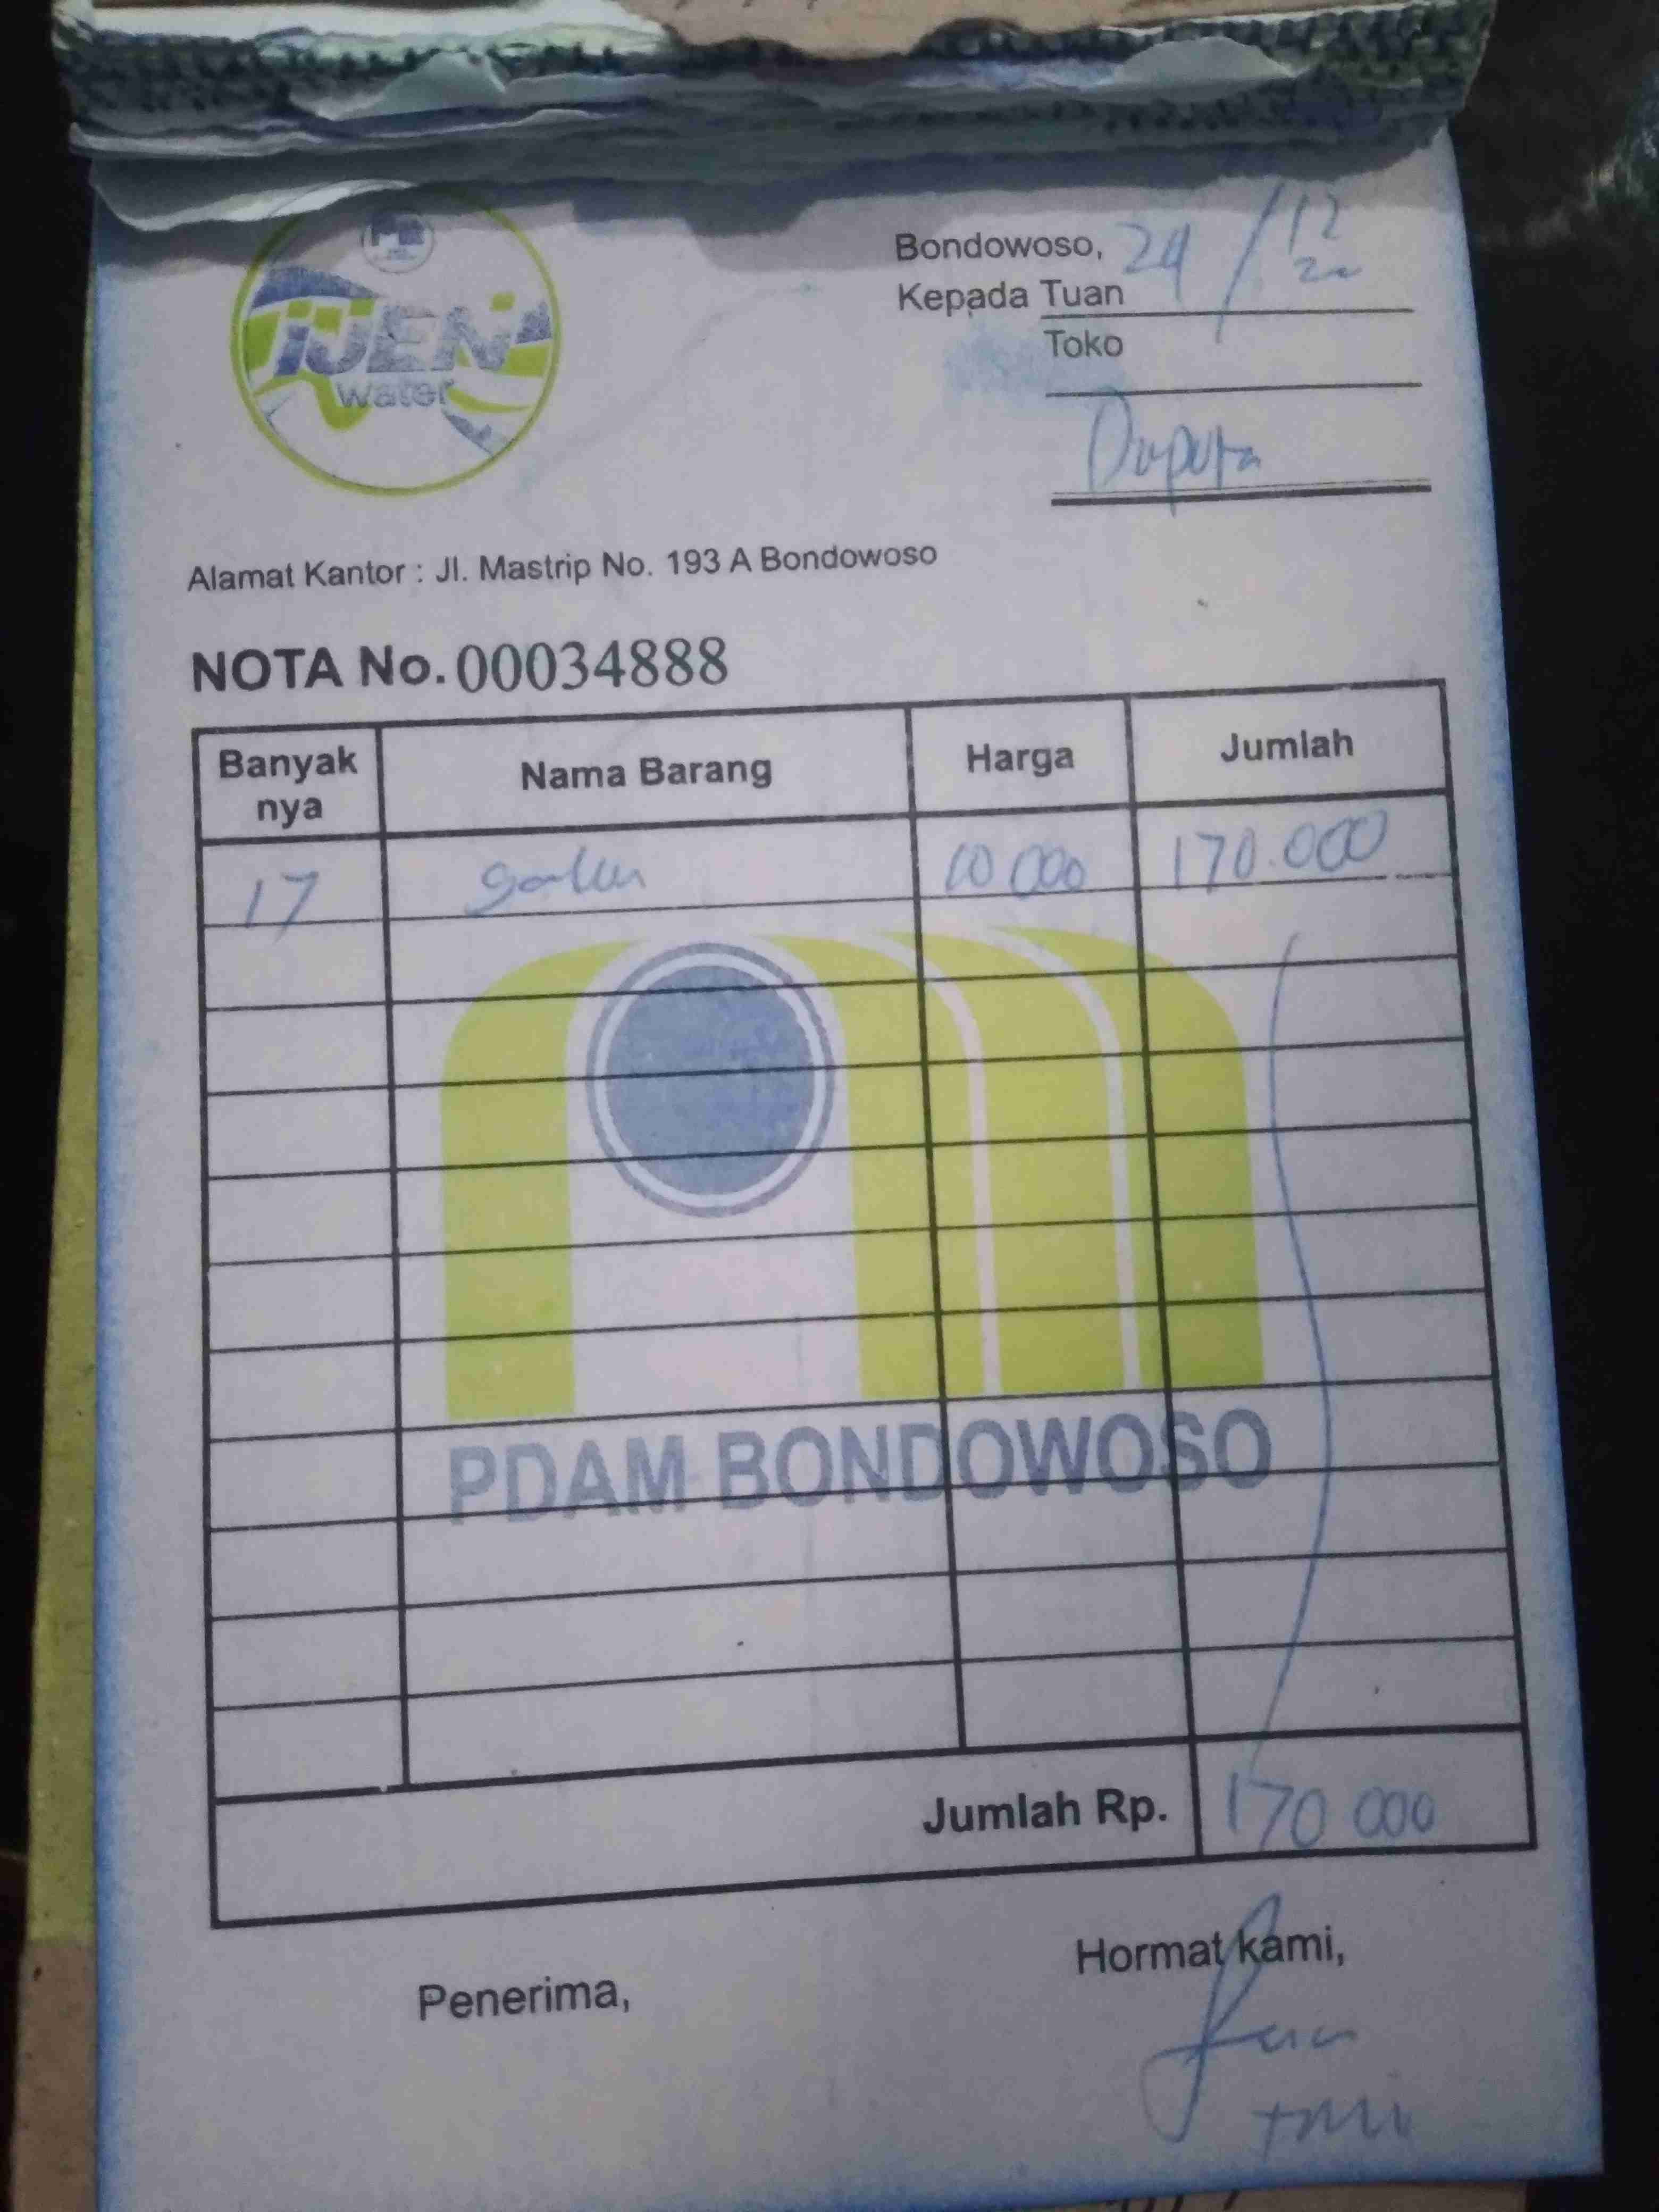 iJEN
water
Bondowoso, 24/12
Kepada Tuan
Toko
Alamat Kantor : Jl. Mastrip No. 193 A Bondowoso
NOTA No. 00034888
Banyak nya Nama Barang Harga Jumlah
17 galon 10 000 170.000
PDAM BONDOWOSO
Jumlah Rp. 170 000
Penerima, Hormat kami,